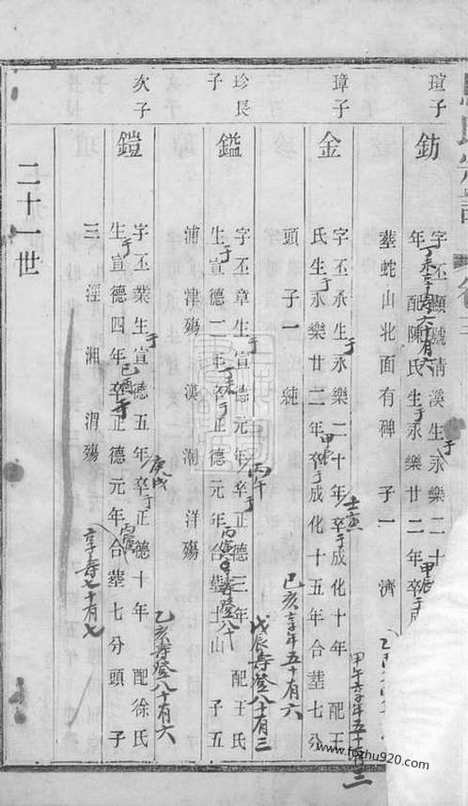 瑄子
鈁
字丕顯號清漢生于永樂二十
年 配陳氏生于永樂廿二年卒于
塟蛇山北面有碑 子一 濟
璋子
金
字丕永生于永樂二十年卒于成化十年 配王
氏生于永樂廿二年卒于成化十五年合塟七分
頭 子一 純
壬寅
甲辰
己亥享年五十有六
珍長
子
鎰
字丕章生于宣德元年卒于正德三年 配王氏
生于宣德二年卒于正德元年合塟土山 子五
浦 津殤 漢 潮 洋殤
丙午
戊辰壽登八十有三
丁未
丙寅
壽登八十
次子
鎧
字丕業生于宣德五年卒于正德十年 配徐氏
生于宣德四年卒于正德元年合塟七分頭 子
三 涇 湘 渭殤
庚戌
乙亥壽登八十有六
己酉
享壽七十有七
二十一世
www.fozhu920.com